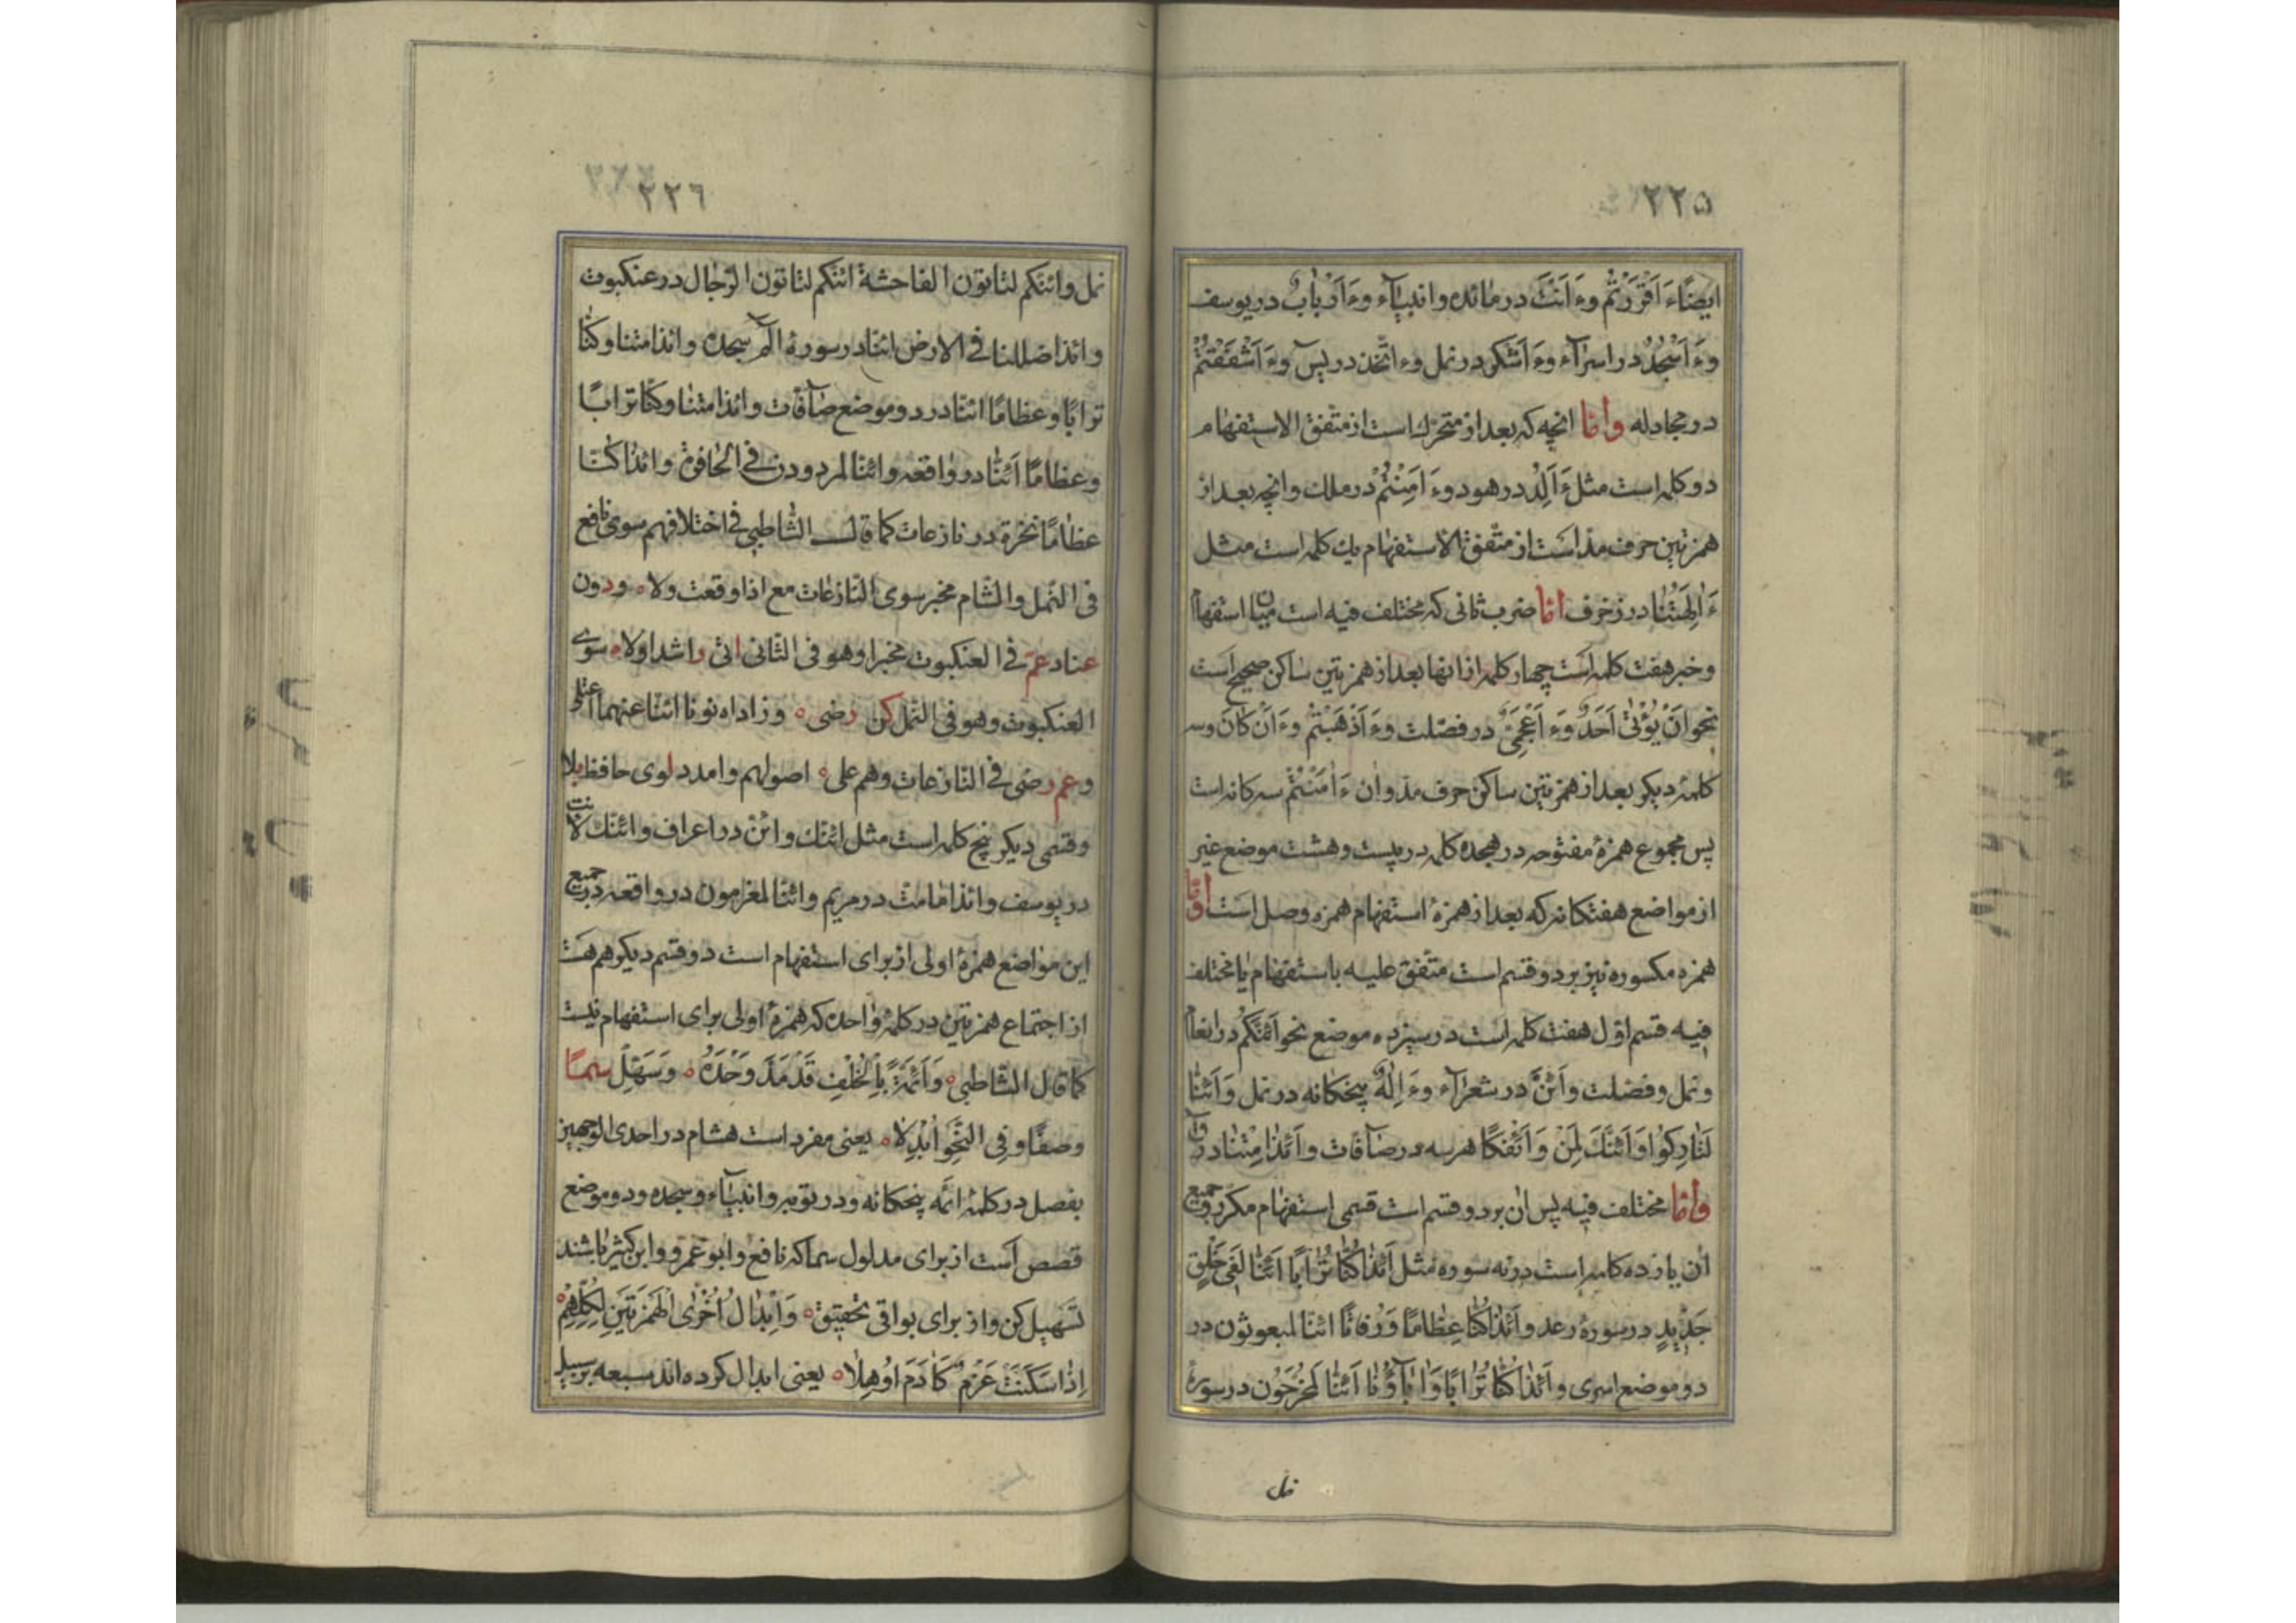 ٢٢٥
ایضًا ءَاَقْرَرْتُم وءَاَنْتَ در مائده و انبیآء وءَاَرْبابٌ در یوسف
وءَاَسْجُدُ در اسرآء وءَاَشکر در نمل وءاتّخذ در یسٓ وءَاَشْفَقْتُمْ
در مجادله وامّا انچه که بعد از متحرّك است از متّفق الاستفهام
دو کلمه است مثل ءَاَلِدُ در هود وءَاَمِنْتُمْ در ملك وانچه بعد از
همزتین حرف مدّ است از متّفق الاستفهام یك کلمه است مثل
ءَاٰلِهَتُنٰا در زخرف امّا ضرب ثانی که مختلف فیه است میان استفهام
وخبر هفت کلمه است چهار کلمه از انها بعد از همزتین ساکن صحیح است
نحو اَنْ یُؤْتیٰ اَحَدٌ وَءَاَعْجَمِیٌّ در فصّلت وءَاَذْهَبْتُمْ وءَاَنْ کٰانَ وسه
کلمهٔ دیکر بعد از همزتین ساکن حرف مدّ وان ءَاٰمَنْتُمْ سه کانه است
پس مجموع همزهٔ مفتوحه در هجده کلمه در بیست وهشت موضع غیر
از مواضع هفتکانه که بعد از همزهٔ استفهام همزه وصل است وامّا
همزه مکسوره نیز بر دو قسم است متّفق علیه باستفهام یا مختلف
فیه قسم اوّل هفت کلمه است در سیزده موضع نحو اَئنّکُم در انعام
ونمل وفصّلت واَئنَّ در شعرٰآء وءَاِلٰهٌ پنجکانه در نمل وَاَئنّٰا
لَتٰارِکُوا وَاَئنَّكَ لَمِنْ وَاَئفْکًا هر سه در صٓافّات واَئذٰا مِتْنٰا در ق
وامّا مختلف فیه پس ان بر دو قسم است قسمی استفهام مکرّر وجمیع
ان یازده کلمه است در نه سوره مثل اَئذٰا کُنّٰا تُرٰابًا اَئنّٰا لَفی خَلْقٍ
جَدیٖدٍ در سورهٔ رعد واَئذٰا کُنّٰا عِظٰامًا وَرُفاتًا ائنّا لمبعوثون در
دو موضع اسری واَئذٰا کُنّٰا تُرٰابًا وَاٰبٰآؤُنٰا اَئنّٰا لَمُخْرَجُون در سورهٔ
نمل
٢٢٦
نمل وائنّکم لتاتون الفاحشة ائنّکم لتاتون الرّجال در عنکبوت
وائذا ضللنا فی الارض ائنّا در سورهٔ الٓمٓ سجده وائذا متنا وکنّا
ترابًا وعظامًا ائنّا در دو موضع صٓافّات وائذا متنا وکنّا ترابًا
وعظامًا اَئنّا در واقعه وائنّا لمردودون فی الحافرة وائذا کنّا
عظامًا نخرة در نازعات کما قال الشّاطبی فی اختلافهم سوی نافع
فی النّمل والشّام مخبر سوی النّازعات مع اذا وقعت ولا ودون
عناد عمّ فی العنکبوت مخبرا وهو فی الثّانی اتی راشدا ولا سوی
العنکبوت وهو فی النّمل کن رضی وزاداه نونا ائنّا عنهما اعتلی
وعمّ رضی فی النّازعات وهم علی اصولهم وامدد لوی حافظ بلا
وقسمی دیکر پنج کلمه است مثل ائنّك وائنّ در اعراف وائنّك لانت
در یوسف وائذا مامتّ در مریم وائنّا لمغرمون در واقعه در جمیع
این مواضع همزهٔ اولی از برای استفهام است دو قسم دیکر هم هست
از اجتماع همزتین در کلمهٔ واحده که همزهٔ اولی برای استفهام نیست
کما قال الشّاطبی وَاَئمّةً بِالْخُلْفِ قَدْ مَدَّ وَحْدَهُ وَسَهِّلْ سما
وصفًا وفِی النّحْوِ اُبْدِلا یعنی مفرد است هشام در احدی الوجهین
بفصل در کلمهٔ ائمّه پنجکانه ودر توبه وانبیآء وسجده ودو موضع
قصص است از برای مدلول سما که نافع وابو عمرو وابن کثیر باشند
تسهیل کن واز برای بواقی تحقیق وَاِبْدٰالُ اُخْرٰی الْهَمْزَتَیْنِ لِکُلِّهِمْ
اِذٰا سَکَنَتْ عَزْمٌ کَاٰدَمَ اُوهِلا یعنی ابدال کرده اند سبعه بر سبیل